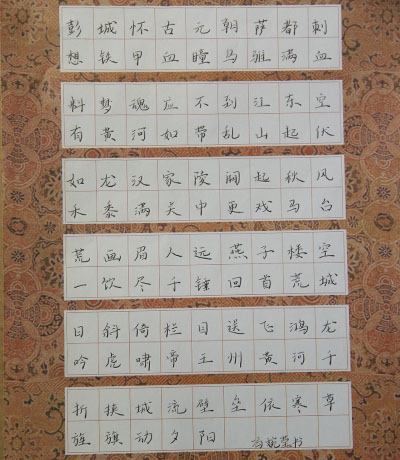 彭城怀古元朝萨都刺
想铁甲血瞳马骓满血
料梦魂应不到江东空
有黄河如带乱山起伏
如龙汉家陵阙起秋风
禾黍满关中更戏马台
荒画眉人远燕子楼空
一饮尽千锤回首荒城
日斜倚栏目送飞鸿龙
吟虎啸帝王州黄河千
折挟城流壁垒依寒草
旌旗动夕阳 书